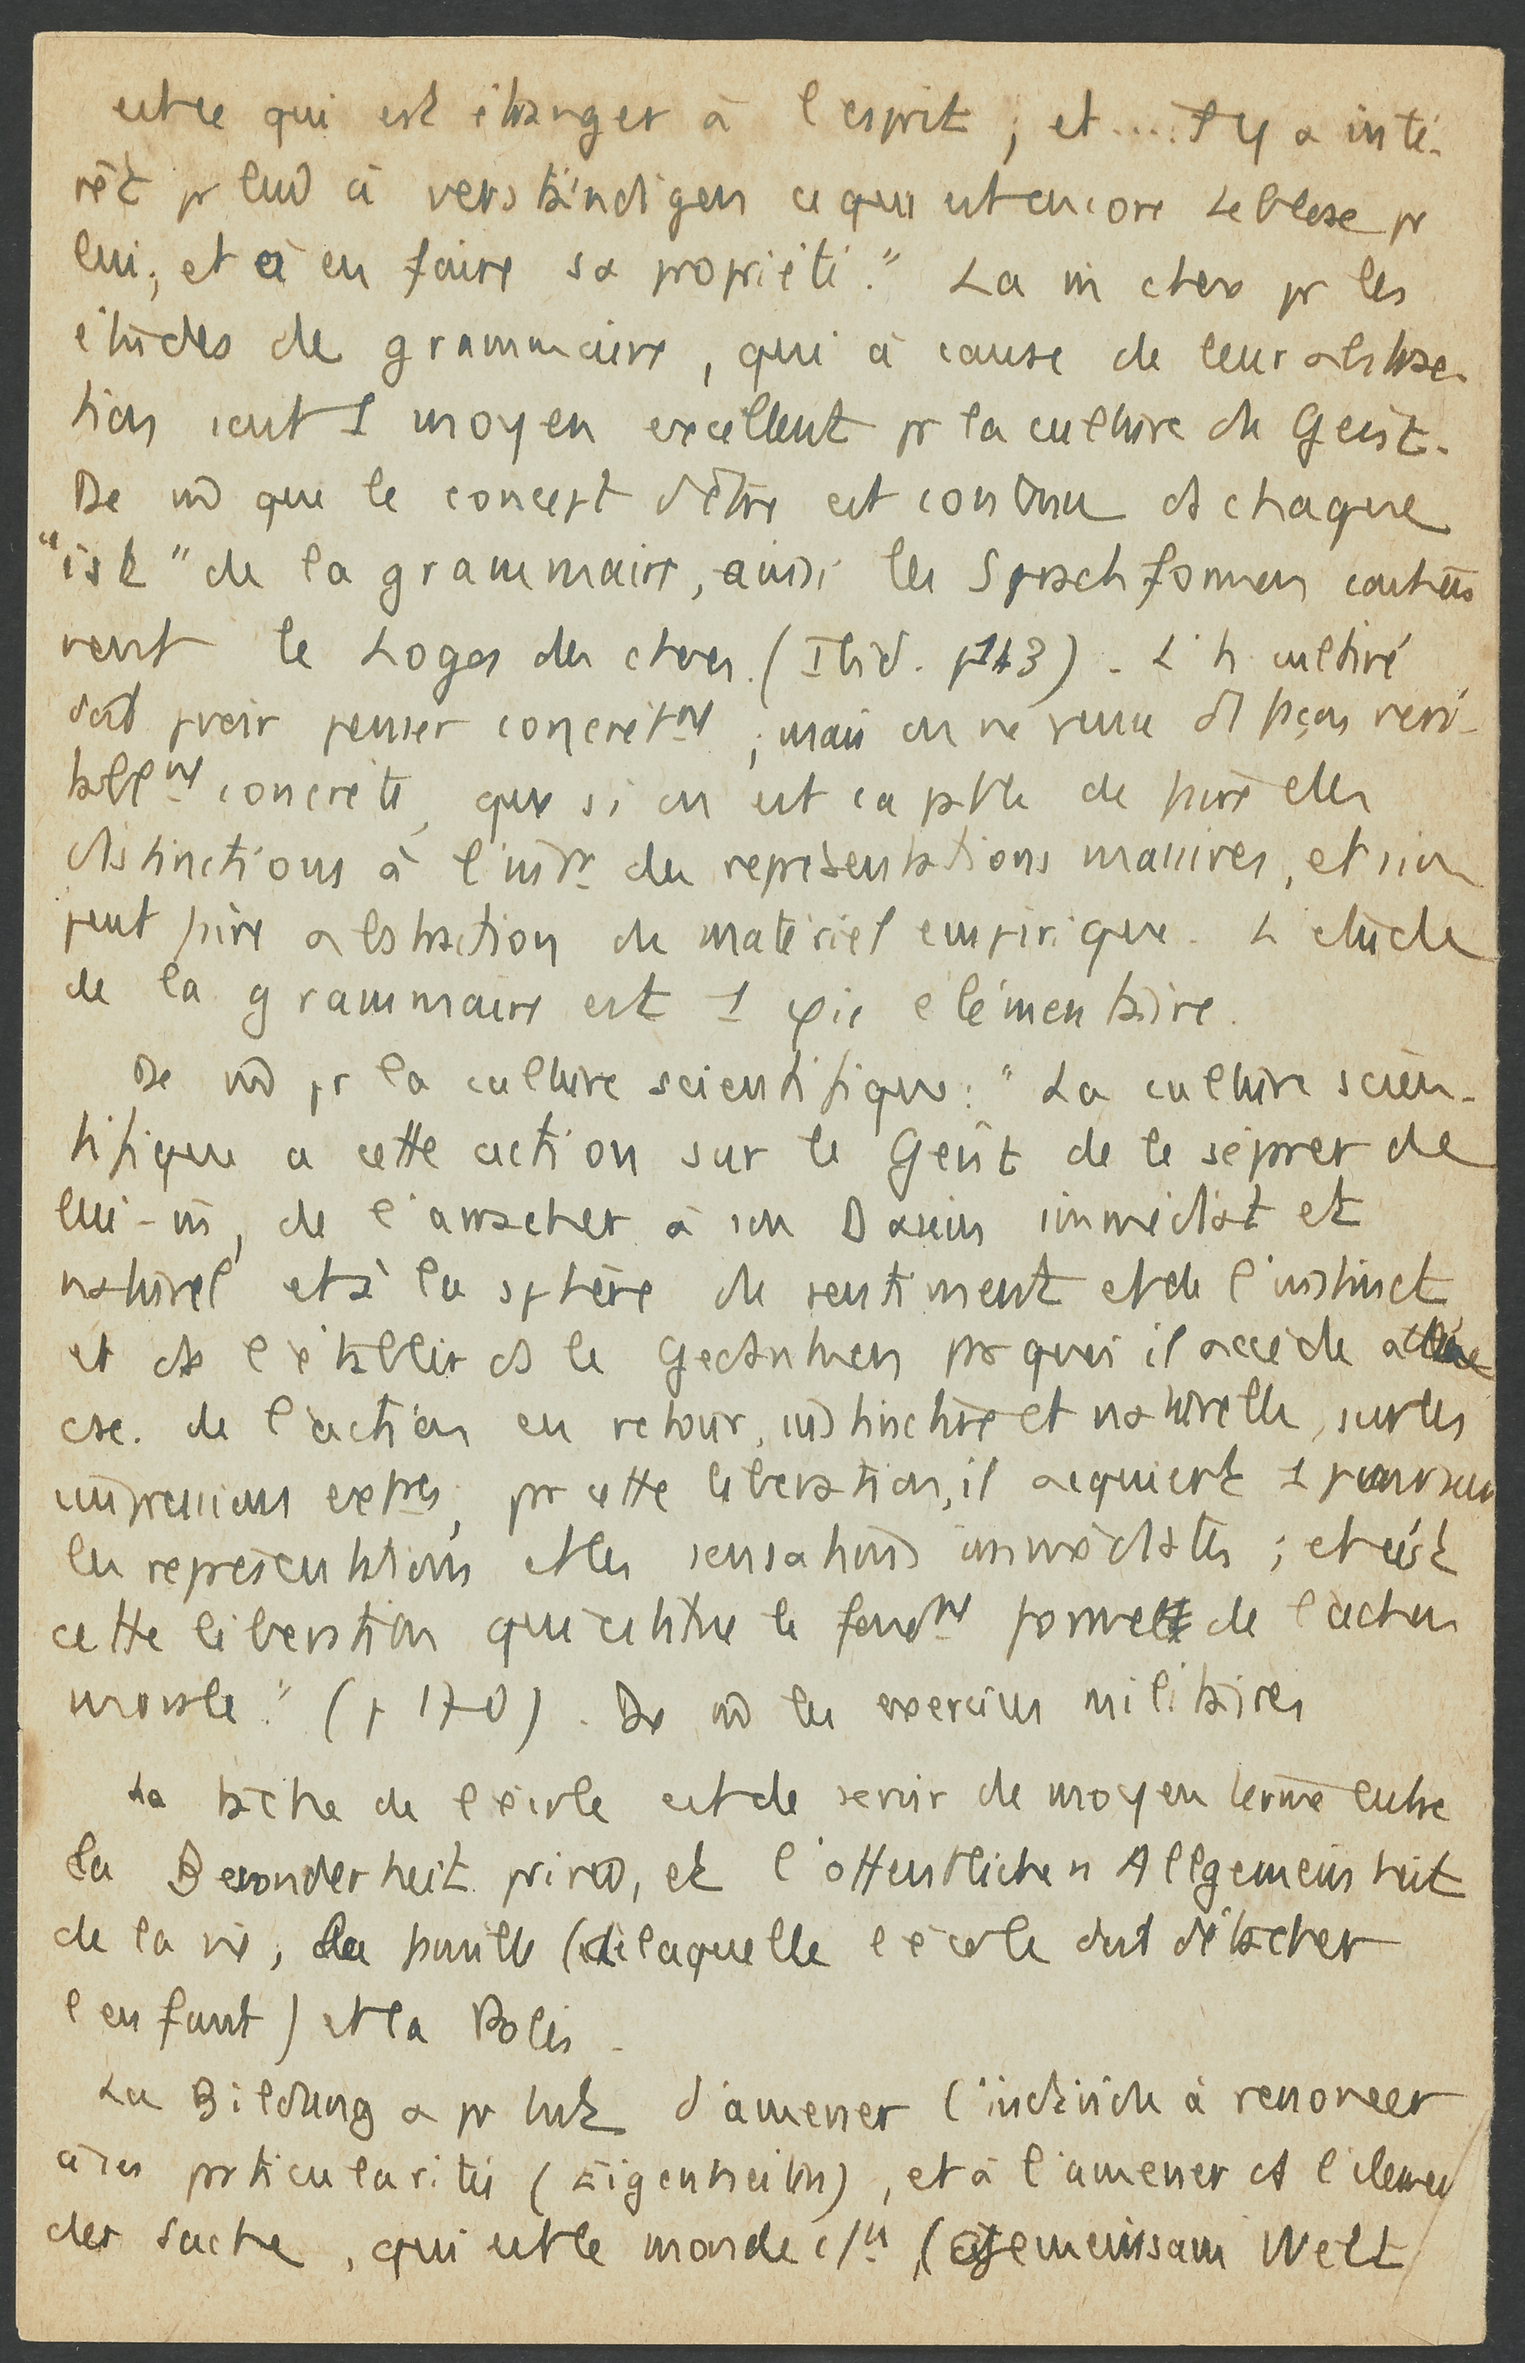 qui est étranger à l'esprit, et .... Il y a inté-
rêt pr lui à verständigen ce qui est encore leblose pr
lui, et à en faire sa propriété." La m chose pr les
études de grammaire, qui à cause de leur abstrac-
tion sont 1 moyen excellent pr la culture du Geist.
De m que le concept d'être est contenu ds chaque
"ist" de la grammaire, ainsi les Sprachformen
le Logos des choses. (Ibid. p 143). L'h cultivé
doit pvoir penser concrètmt ; mais on ne pense d'1 façon véri-
tablmt concrète, que si on est capable de faire des
distinctions à l'intr des représentations massives, et si on
peut faire abstraction du matériel empirique. L'étude
de la grammaire est 1 φie élémentaire.
De m pr la culture scientifique : "La culture scien-
tifique a cette action sur le Geist de le séparer de
lui-m, de l'arracher à son Dasein immédiat et
naturel et à la sphère du sentiment et de l'instinct
et de l'établir ds le Gedanken par quoi il accède à
de l'action en retour, instinctive et naturelle, sur les
impressions extres, par cette libération, il acquiert 1
les représentations et les sensations immédiates ; et c'est
cette libération qui constitue le fondmt formel de l'action
morale." (p 170). De m les exercices militaires
La tâche de l'école est de servir de moyen terme entre
la Besonderheit privée, et l'öffentlichen Allgemeinheit
de la vie, la famille (de laquelle l'école doit détacher
l'enfant) et la Polis.
La Bildung a pr but d'amener l'individu à renoncer
à ses particularités (Eigenheiten), et à l'amener ds l'élément
der Sache, qui est le monde c/n (Gemeinsam Welt